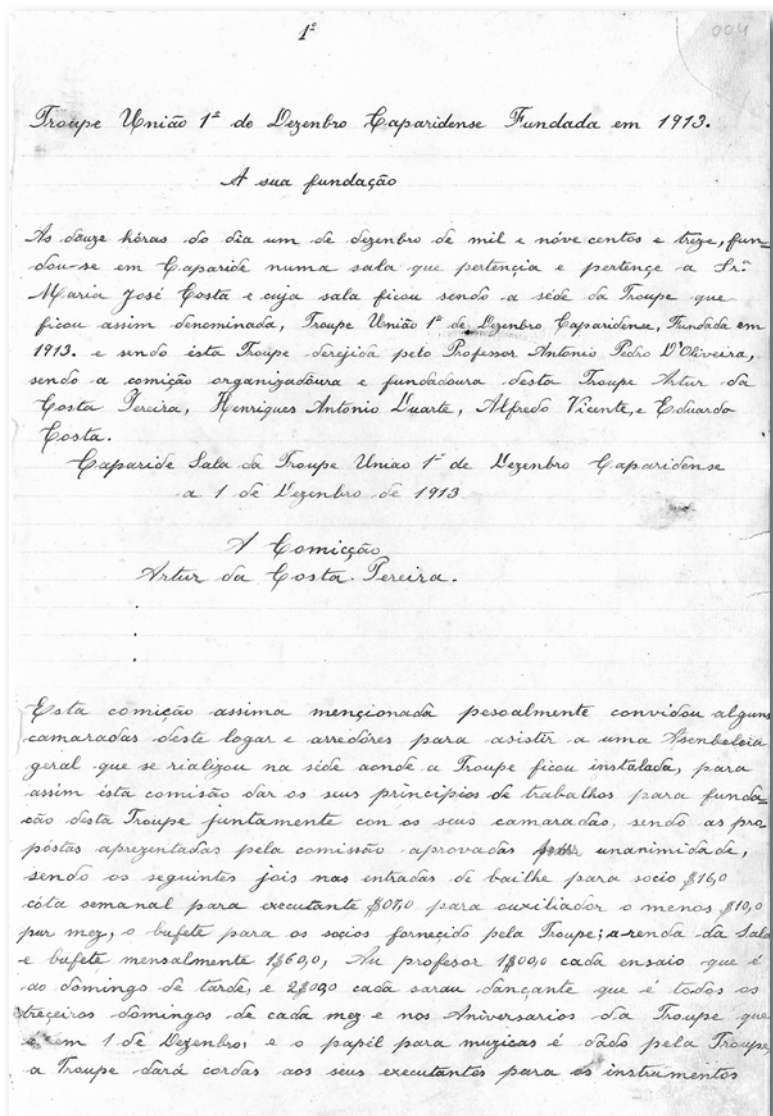 1º
004
Troupe União 1º de Dezenbro Caparidense Fundada em 1913.
A sua fundação
As douze hóras do dia um de dezenbro de mil e nóve centos e treze, fun-
dou-se em Caparide numa sala que pertençia e pertençe a Srª
Maria José Costa e cuja sala ficou sendo a séde da Troupe que
ficou assim denominada, Troupe União 1º de Dezenbro Caparidense, Fundada em
1913. e sendo ésta Troupe derejida pelo Professor Antonio Pedro D'Oliveira,
sendo a comição organizadoura e fundadoura desta Troupe Artur da
Costa Pereira, Henriques Antonio Duarte, Alfredo Vicente, e Eduardo
Costa.
Caparide Sala da Troupe Uniao 1º de Dezenbro Caparidense
a 1 de Dezenbro de 1913
A Comicção
Artur da Costa Pereira.
.
.
.
Esta comição assima mençionada pesoalmente convidou alguns
camaradas déste logar e arredóres para asistir a uma Asenbeleia
geral que se rializou na séde aonde a Troupe ficou instalada, para
assim ésta comisão dar os seus principios de trabalhos para funda-
cão desta Troupe juntamente con os seus camaradas, sendo as pro
póstas aprezentadas pela comissão aprovadas unanimidade,
sendo os seguintes jois nas entradas de bailhe para socio $16,0
cóta semanal para executante $07,0 para auxiliador o menos $10,0
pur mez, o bufete para os soçios forneçido pela Troupe; a renda da Sala
e bufete mensalmente 1$60,0, Au profesor 1$00,0 cada ensaio que é
ao domingo de tarde, e 2$00,0 cada sarau dançante que é todos os
treçeiros domingos de cada mez e nos Aniversarios da Troupe que
e em 1 de Dezenbro, e o papél para muzicas é dado pela Troupe,
a Troupe dará cordas aos seus executantes para os instrumentos